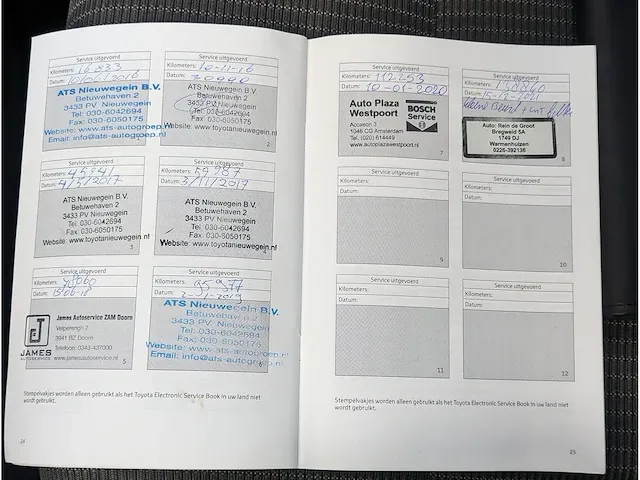 Service uitgevoerd
Kilometers: 16833
Datum:
ATS Nieuwegein B.V.
Betuwehaven 2
3433 PV Nieuwegein
Tel: 030-6042694
Fax: 030-6050175
Website: www.ats-autogroep.nl
Email: info@ats-autogroep.nl
Service uitgevoerd
Kilometers: 10-11-16
Datum: 30000
ATS Nieuwegein B.V.
Betuwehaven 2
3433 PV Nieuwegein
Tel: 030-6042694
Fax: 030-6050175
2
Service uitgevoerd
Kilometers: 45941
Datum: 4/5/2017
ATS Nieuwegein B.V.
Betuwehaven 2
3433 PV Nieuwegein
Tel: 030-6042694
Fax: 030-6050175
Website: www.toyotanieuwegein.nl
3
Service uitgevoerd
Kilometers: 59987
Datum: 3/11/2017
ATS Nieuwegein B.V.
Betuwehaven 2
3433 PV Nieuwegein
Tel: 030-6042694
Fax: 030-6050175
Website: www.toyotanieuwegein.nl
4
Service uitgevoerd
Kilometers:
Datum:
JAMES
AUTOSERVICE
James Autoservice ZAM Doorn
Velperengh 2
3941 BZ Doorn
Telefoon: 0343-437000
www.jamesautoservice.nl
5
Service uitgevoerd
Kilometers: 95977
Datum:
ATS Nieuwegein B.V.
Betuwehaven 2
3433 PV Nieuwegein
Tel: 030-6042694
Fax: 030-6050175
Website: www.ats-autogroep.nl
Email: info@ats-autogroep.nl
6
Stempelvakjes worden alleen gebruikt als het Toyota Electronic Service Book in uw land niet
wordt gebruikt.
24
Service uitgevoerd
Kilometers: 112253
Datum: 10-01-2020
Auto Plaza
Westpoort
BOSCH
Service
Accason 3
1046 CG Amsterdam
Tel. (020) 614449
www.autoplazawestpoort.nl
7
Service uitgevoerd
Kilometers: 138860
Datum:
Auto: Rein de Groot
Bregweid 5A
1749 DJ
Warmenhuizen
0226-392136
8
Service uitgevoerd
Kilometers:
Datum:
9
Service uitgevoerd
Kilometers:
Datum:
10
Service uitgevoerd
Kilometers:
Datum:
11
Service uitgevoerd
Kilometers:
Datum:
12
Stempelvakjes worden alleen gebruikt als het Toyota Electronic Service Book in uw land niet
wordt gebruikt.
25